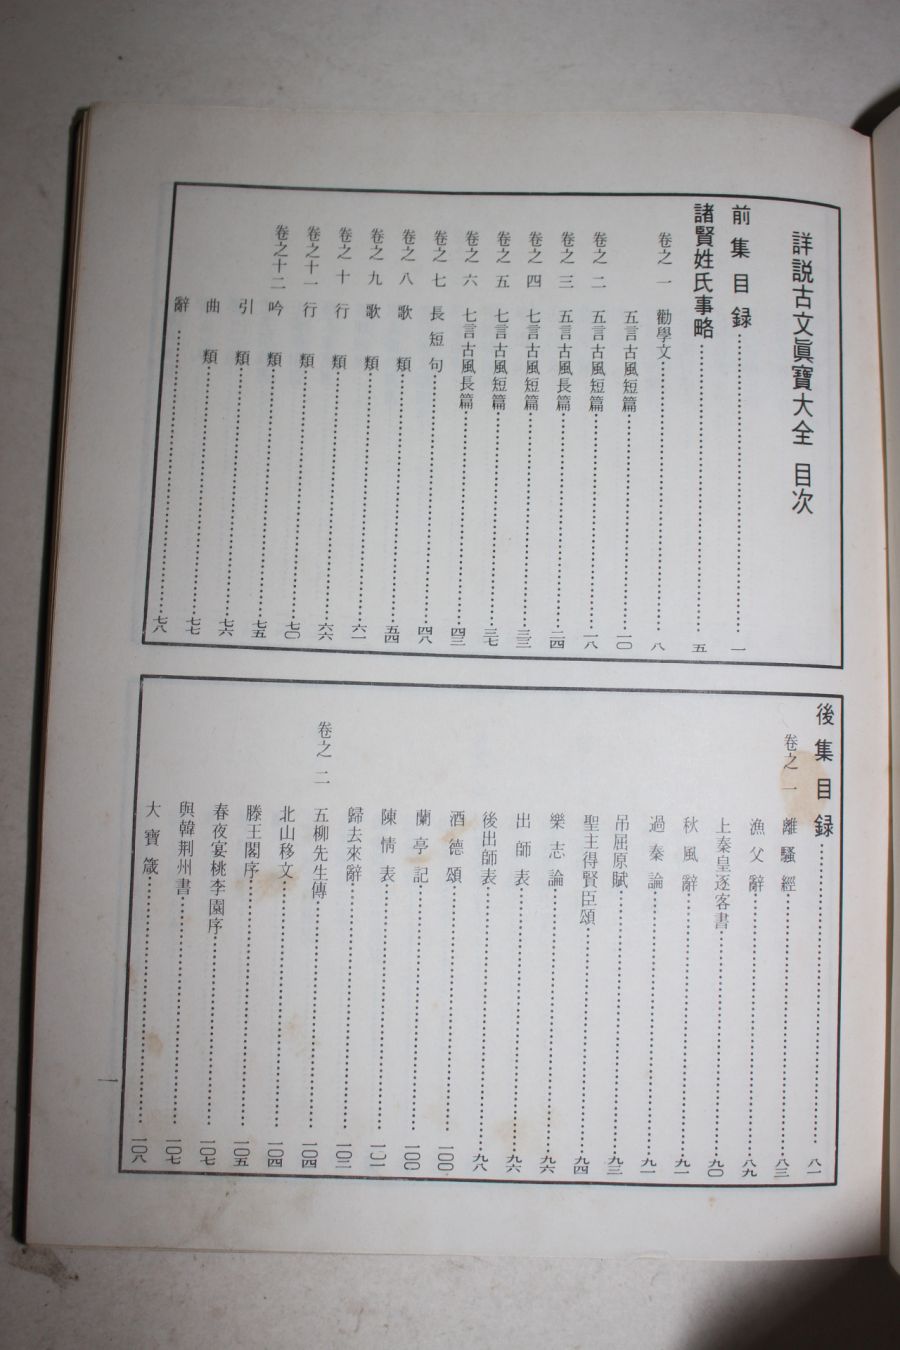 詳説古文眞寶大全 目次
前集目録……一
諸賢姓氏事略……五
卷之一 勸學文……八
五言古風短篇……一〇
卷之二 五言古風短篇……一八
卷之三 五言古風長篇……二四
卷之四 七言古風短篇……三三
卷之五 七言古風短篇……三七
卷之六 七言古風長篇……四三
卷之七 長短句……四八
卷之八 歌類……五四
卷之九 歌類……六一
卷之十 行類……六六
卷之十一 行類……七〇
卷之十二 吟類……七五
引類……七六
曲類……七七
辭……七八
後集目録……八一
卷之一 離騷經……八三
漁父辭……八九
上秦皇逐客書……九〇
秋風辭……九一
過秦論……九一
吊屈原賦……九三
聖主得賢臣頌……九四
樂志論……九六
出師表……九六
後出師表……九八
酒德頌……一〇〇
蘭亭記……一〇〇
陳情表……一〇一
歸去來辭……一〇二
卷之二 五柳先生傳……一〇四
北山移文……一〇四
滕王閣序……一〇五
春夜宴桃李園序……一〇七
與韓荆州書……一〇七
大寶箴……一〇八
一